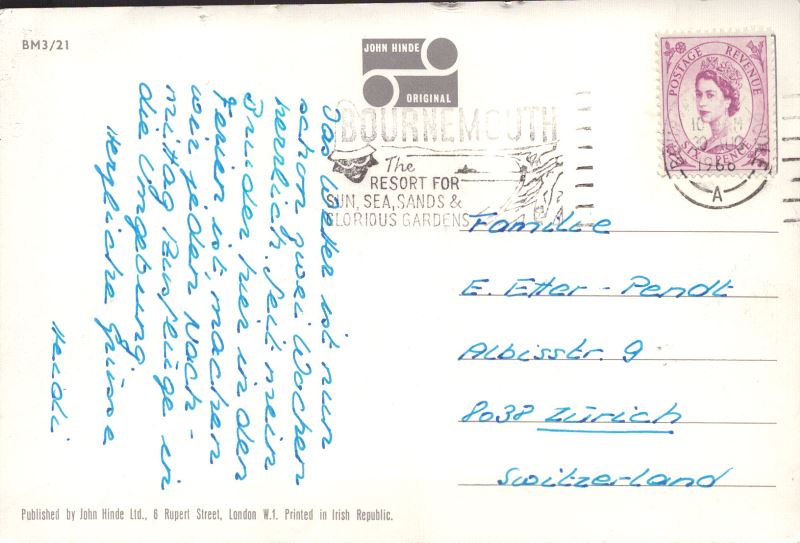 BM3/21
JOHN HINDE
ORIGINAL
BOURNEMOUTH
The
RESORT FOR
SUN, SEA, SANDS &
GLORIOUS GARDENS
POSTAGE REVENUE
SIXPENCE
1966
A
Das Wetter ist nun
schon zwei Wochen
herrlich. Seit mein
Bruder hier in den
Ferien ist, machen
wir jeden Nach-
mittag Ausflüge in
die Umgebung.
Herzliche Grüsse
Heidi
Familie
E. Etter-Pendt
Albisstr. 9
8038 Zürich
Switzerland
Published by John Hinde Ltd., 6 Rupert Street, London W.1. Printed in Irish Republic.